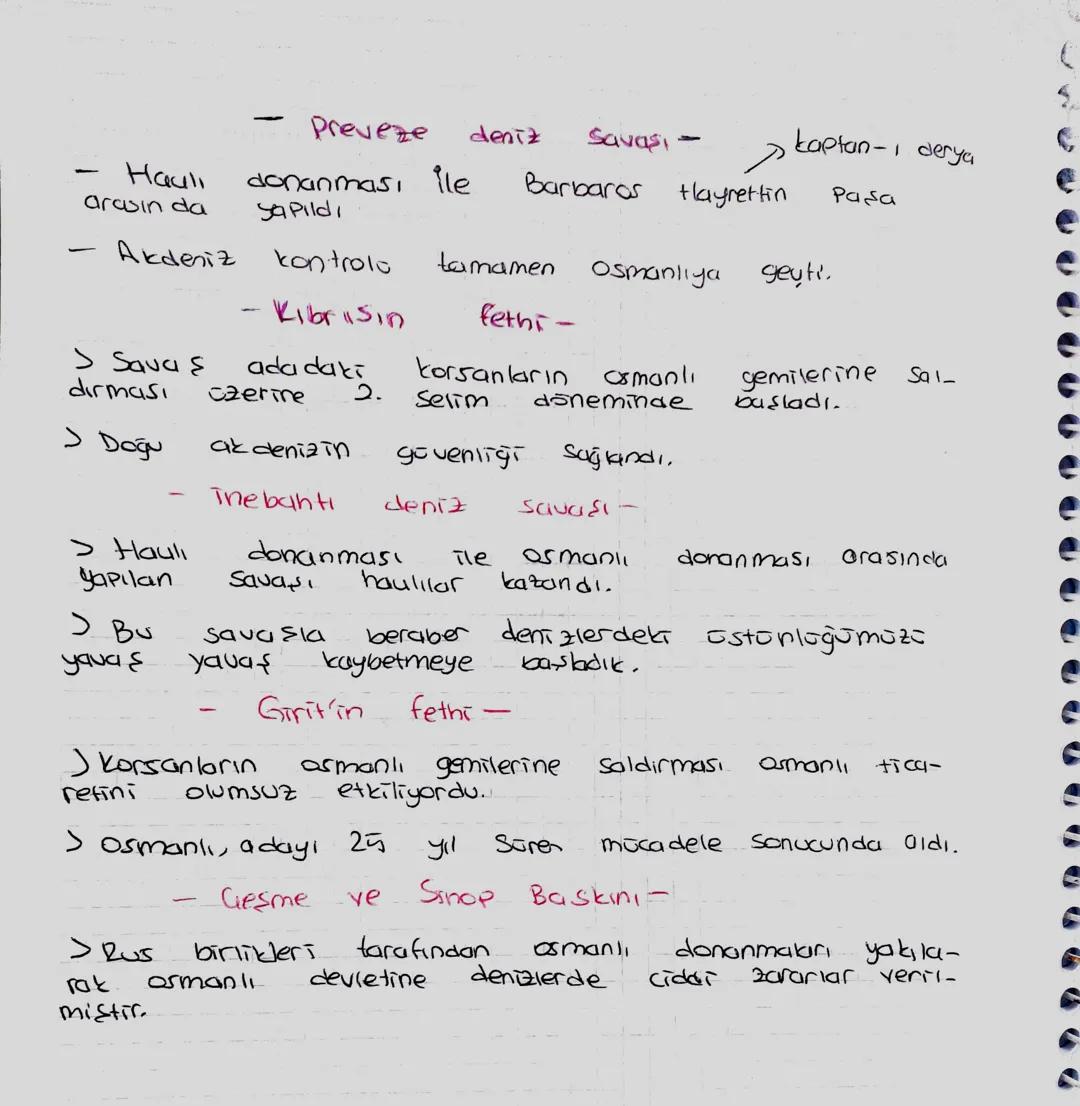 - Preveze deniz Savaşı -
→ kaptan-ı derya
- Haçlı donanması ile Barbaros Hayrettin Paşa
arasında yapıldı
- Akdeniz kontrolü tamamen Osmanlıya geçti.
- Kıbrısın fethi -
> Savaş adadaki korsanların osmanlı gemilerine sal-
dırması üzerine 2. Selim döneminde başladı.
> Doğu akdenizin güvenliği sağlandı.
- inebahtı deniz savaşı -
> Haçlı donanması ile osmanlı donanması arasında
yapılan savaşı haçlılar kazandı.
> Bu savaşla beraber denizlerdeki üstünlüğümüzü
yavaş yavaş kaybetmeye başladık.
- Girit'in fethi -
> Korsanların osmanlı gemilerine saldırması osmanlı tica-
retini olumsuz etkiliyordu.
> Osmanlı, adayı 25 yıl süren mücadele sonucunda aldı.
- Çeşme ve Sinop Baskını -
> Rus birlikleri tarafından osmanlı donanmaları yakıla-
rak osmanlı devletine denizlerde ciddi zararlar veril-
miştir.